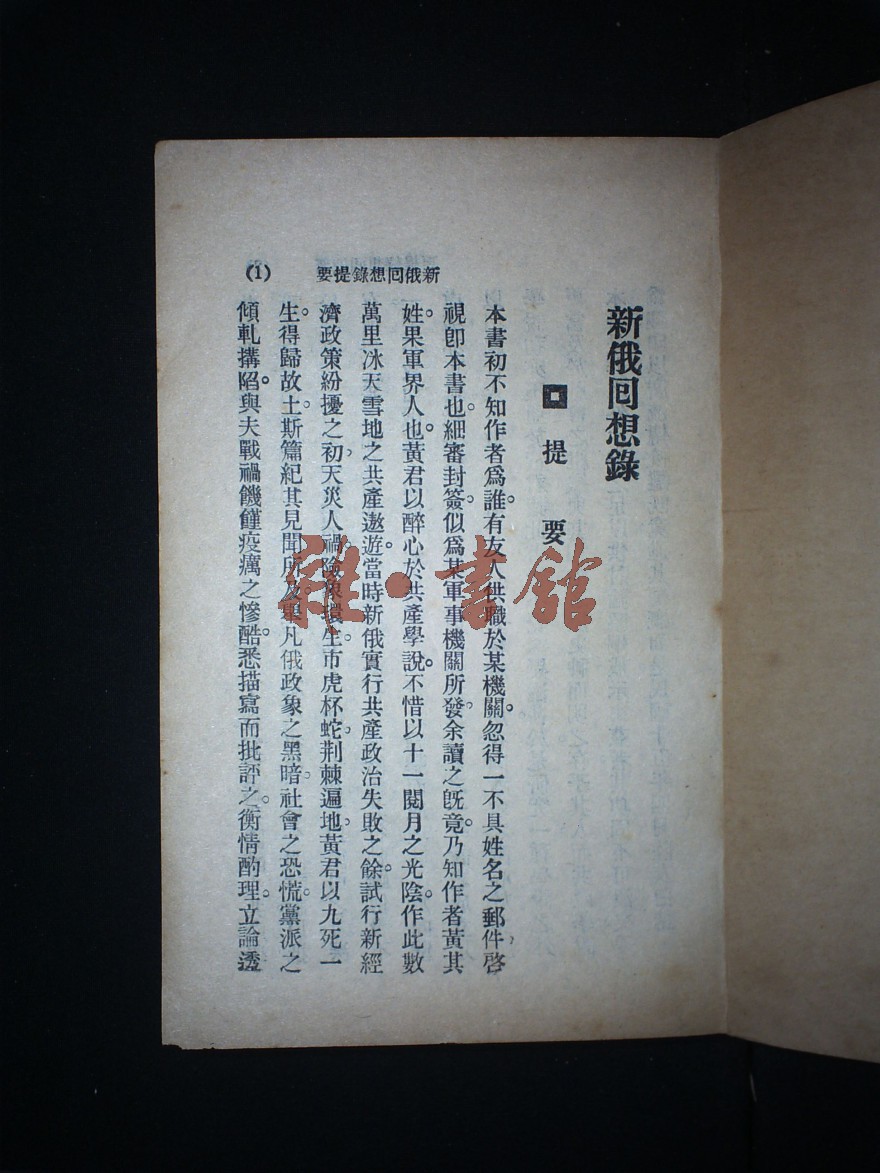 新俄回想錄
提要
本書初不知作者爲誰。有友人供職於某機關。忽得一不具姓名之郵件。啓
視卽本書也。細審封簽。似爲某軍事機關所發。余讀之旣竟。乃知作者黃其
姓。果軍界人也。黃君以醉心於共產學說。不惜以十一閱月之光陰。作此數
萬里冰天雪地之共產遨遊。當時新俄實行共產政治失敗之餘。試行新經
濟政策紛擾之初。天災人禍。險象環生。市虎杯蛇。荆棘遍地。黃君以九死一
生。得歸故土。斯篇紀其見聞所及。舉凡俄政象之黑暗。社會之恐慌。黨派之
傾軋搆陷。與夫戰禍饑饉疫癘之慘酷。悉描寫而批評之。衡情酌理。立論透
新俄回想錄提要 (1)
雜·書館